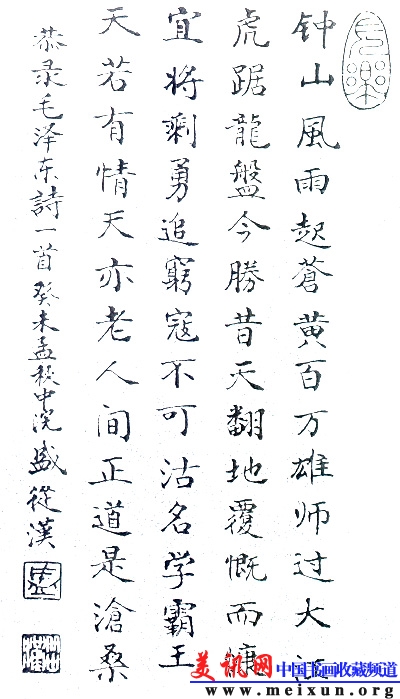 钟山風雨起蒼黄百万雄师过大江
虎踞龍盤今勝昔天翻地覆慨而慷
宜将剩勇追窮寇不可沽名学霸王
天若有情天亦老人间正道是滄桑
恭录毛泽东詩一首癸未孟秋中浣盛從漢
美讯网 中国书画收藏频道
www.meixun.org